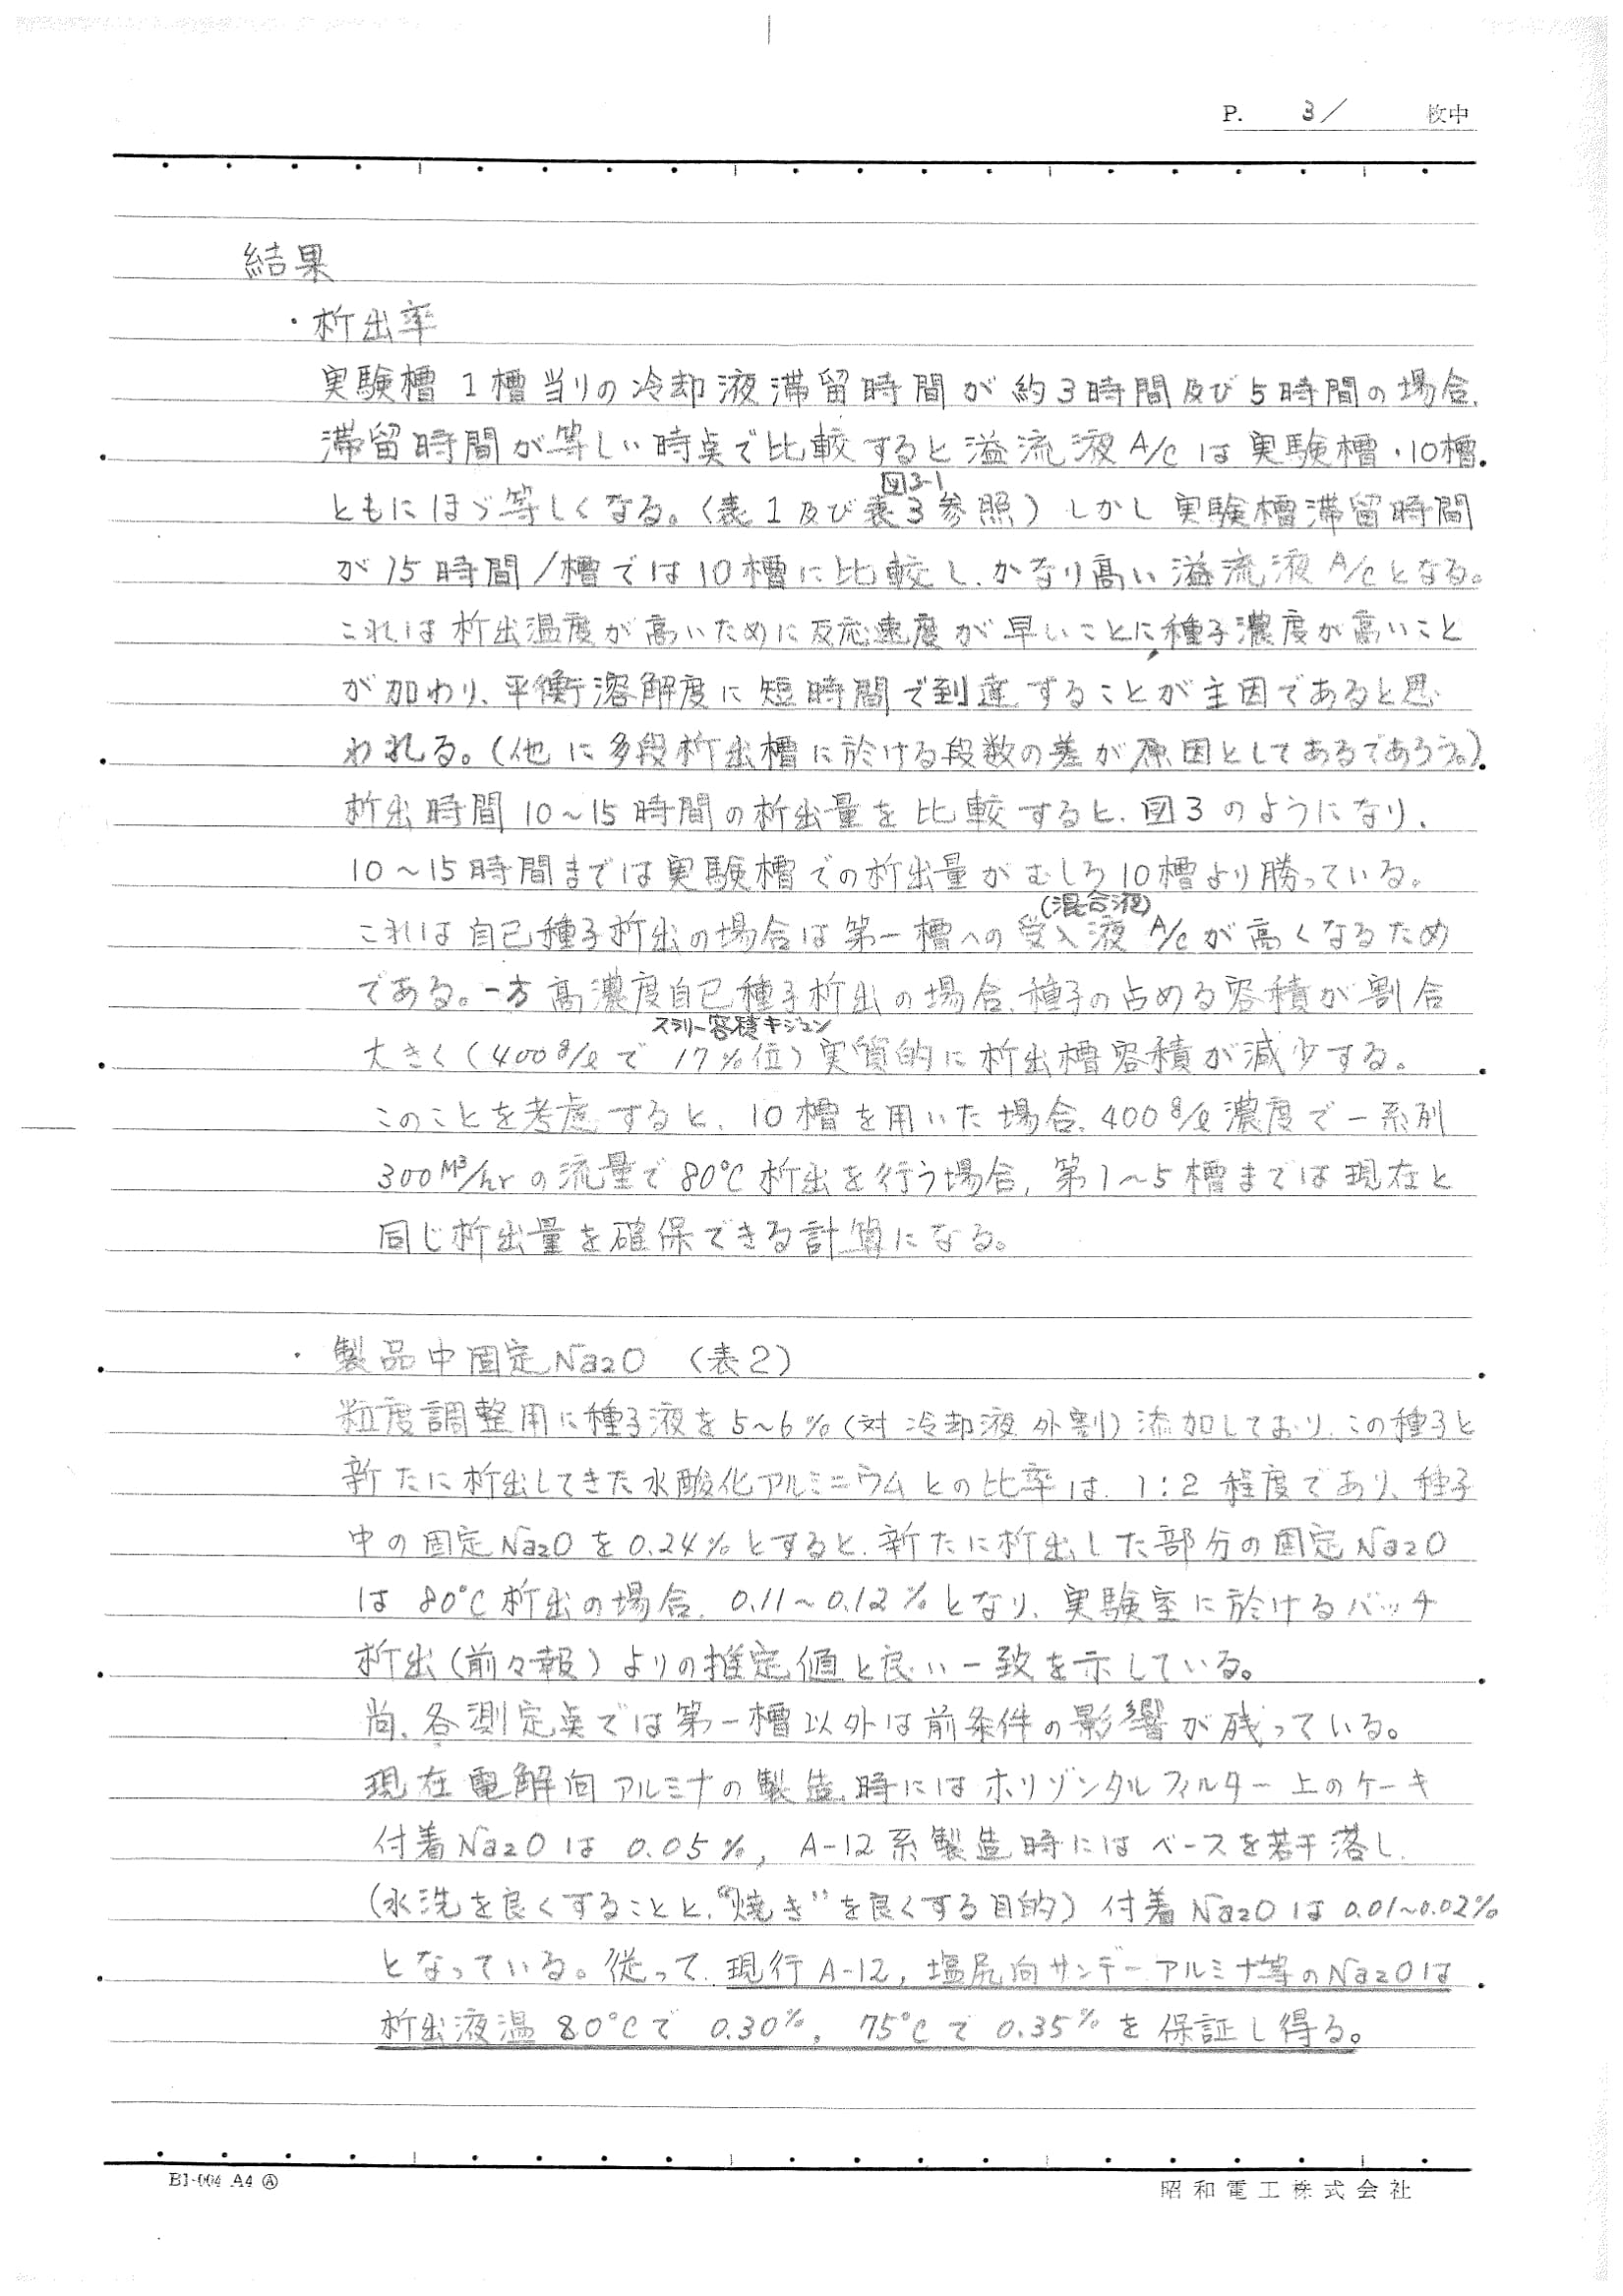 P. 3/ 枚中
結果
・析出率
実験槽1槽当りの冷却液滞留時間が約3時間及び5時間の場合、
滞留時間が等しい時点で比較すると溢流液A/Cは実験槽・10槽
図3-1
ともにほゞ等しくなる。(表1及び表3参照)しかし実験槽滞留時間
が15時間/槽では10槽に比較し、かなり高い溢流液A/Cとなる。
これは析出温度が高いために反応速度が早いことに、種子濃度が高いこと
が加わり、平衡溶解度に短時間で到達することが主因であると思
われる。(他に多段析出槽に於ける段数の差が原因としてあるであろう。)
析出時間10~15時間の析出量を比較すると、図3のようになり、
10~15時間までは実験槽での析出量がむしろ10槽より勝っている。
(混合液)
これは自己種子析出の場合は第一槽への受入液A/Cが高くなるため
である。一方高濃度自己種子析出の場合、種子の占める容積が割合
スラリー容積キジュン
大きく(400g/ℓで17%位)実質的に析出槽容積が減少する。
このことを考慮すると、10槽を用いた場合、400g/ℓ濃度で一系列
300M³/hrの流量で80℃析出を行う場合、第1~5槽までは現在と
同じ析出量を確保できる計算になる。
・製品中固定Na2O (表2)
粒度調整用に種子液を5~6%(対冷却液外割)添加しており、この種子と
新たに析出してきた水酸化アルミニウムとの比率は、1:2程度であり、種子
中の固定Na2Oを0.24%とすると、新たに析出した部分の固定Na2O
は80℃析出の場合、0.11~0.12%となり、実験室に於けるバッチ
析出(前々報)よりの推定値と良い一致を示している。
尚、各測定点では第一槽以外は前条件の影響が残っている。
現在電解向アルミナの製造時にはホリゾンタルフィルター上のケーキ
付着Na2Oは0.05%, A-12系製造時にはベースを若干落し、
(水洗を良くすることと、"焼き"を良くする目的)付着Na2Oは0.01~0.02%
となっている。従って、現行A-12, 塩尻向サンデーアルミナ等のNa2Oは
析出液温80℃で0.30%, 75℃で0.35%を保証し得る。
BJ-004 A4 Ⓐ
昭和電工株式会社